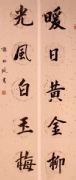 暖日黄金柳
光風白玉梅